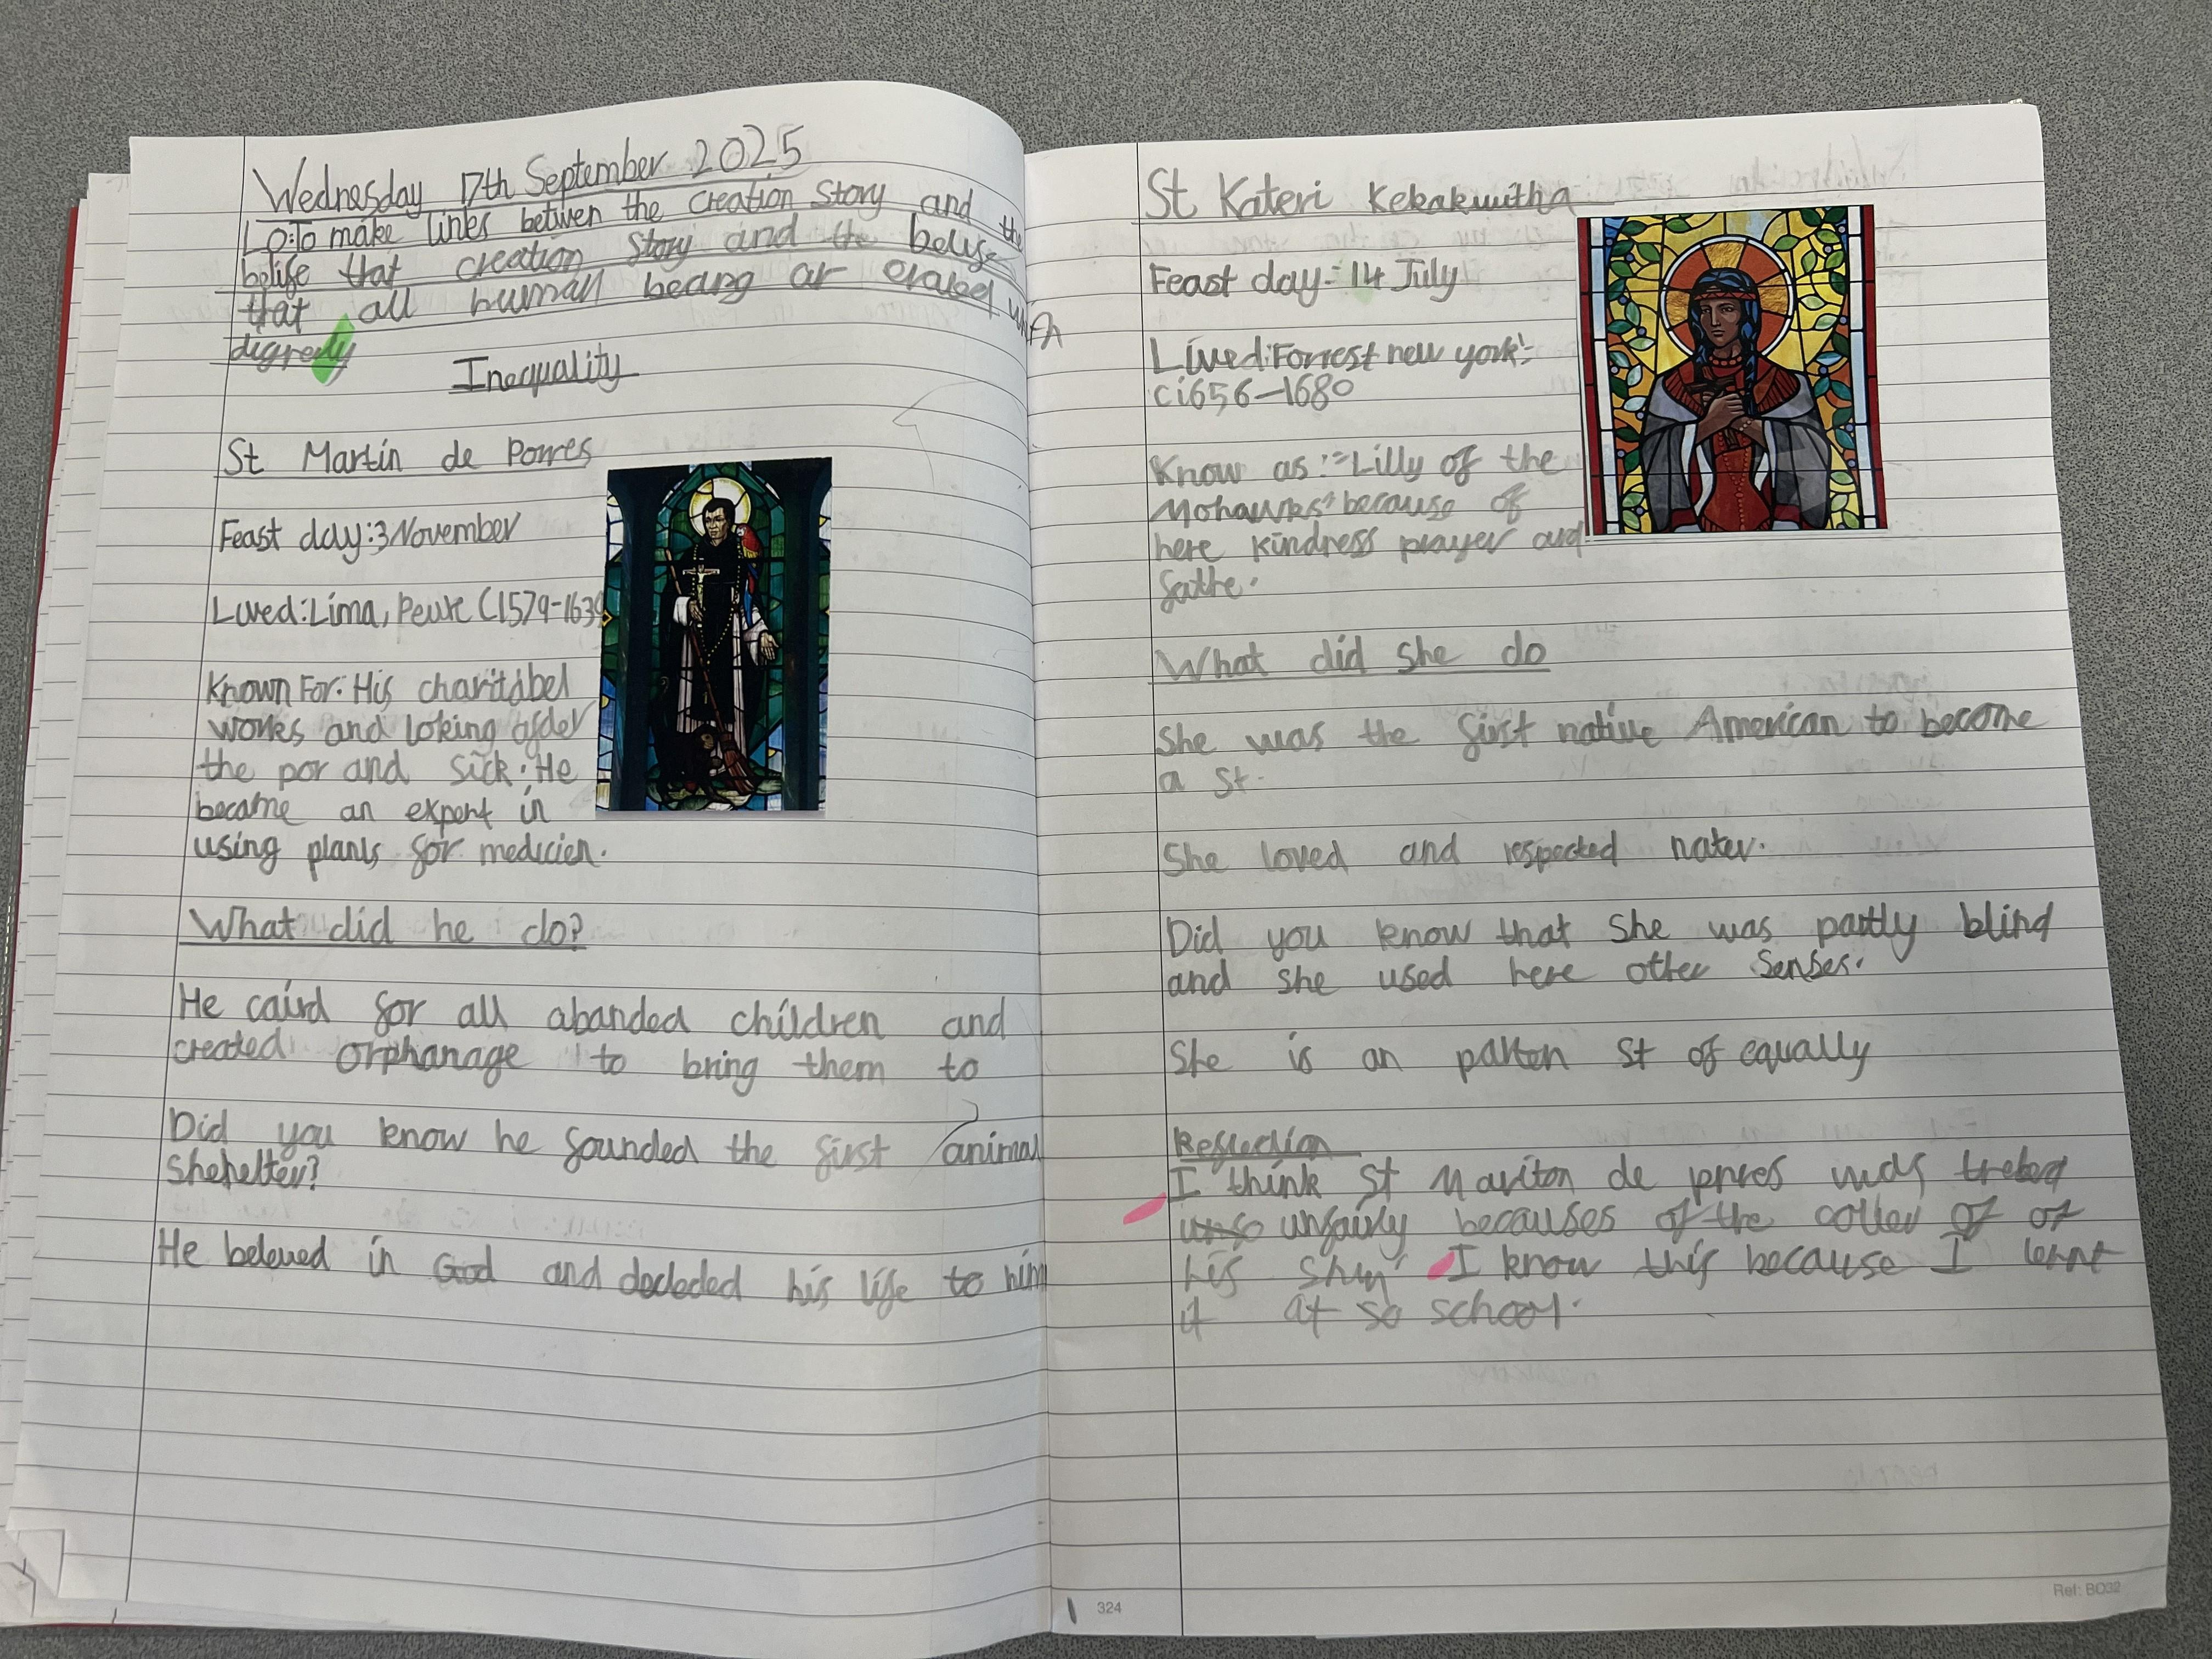 Wednesday 17th September 2025
LO:To make links betwen the creation Story and the
belife that creation Story and the belise
that all human beang ar crated with
digredy
Inequality
St Martin de Porres
Feast day:3 November
Lived:Lima, Peure (1579-1639
Known For: His charitabel
works and loking after
the por and sick. He
became an expert in
using plants for medicien.
What did he do?
He caird for all abanded children and
created orphanage to bring them to
Did you know he founded the first animal
Shehelter?
He beleved in God and docleded his life to him
St Kateri Kekakwitha
Feast day:-14 July
Lived:Forrest new york:-
c1656-1680
Know as:-Lilly of the
Mohawks because of
here kindress prayer and
faithe.
What did she do
She was the first native American to become
a st.
She loved and respected nater.
Did you know that She was partly blind
and she used here other senses.
She is an patten St of equally
Reflection
I think St Mariton de porres was treted
unfairly becauses of the coller of of
his skin I know this because I lernt
it at so school.
324
Ref: BO32